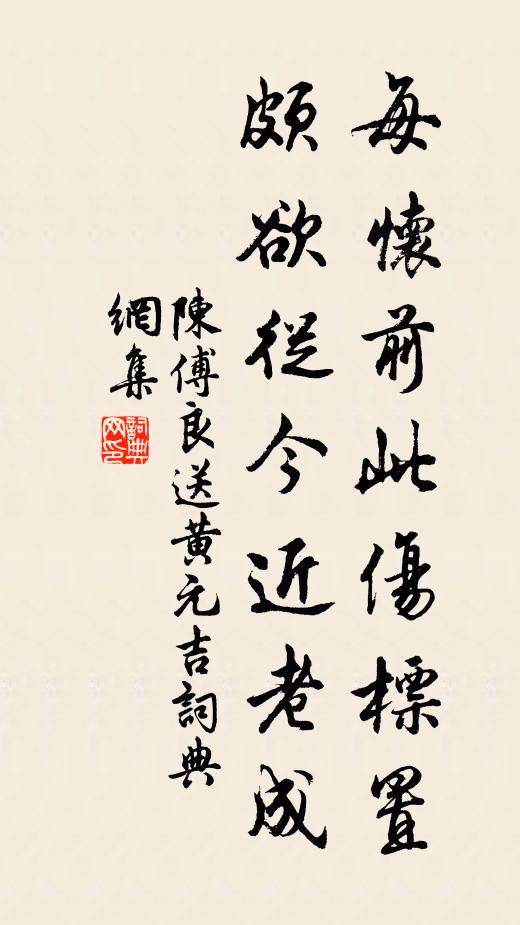 每懷前此傷標置
頗欲從今近老成
陳傅良送黃元吉詞典
網集
詞典
网印